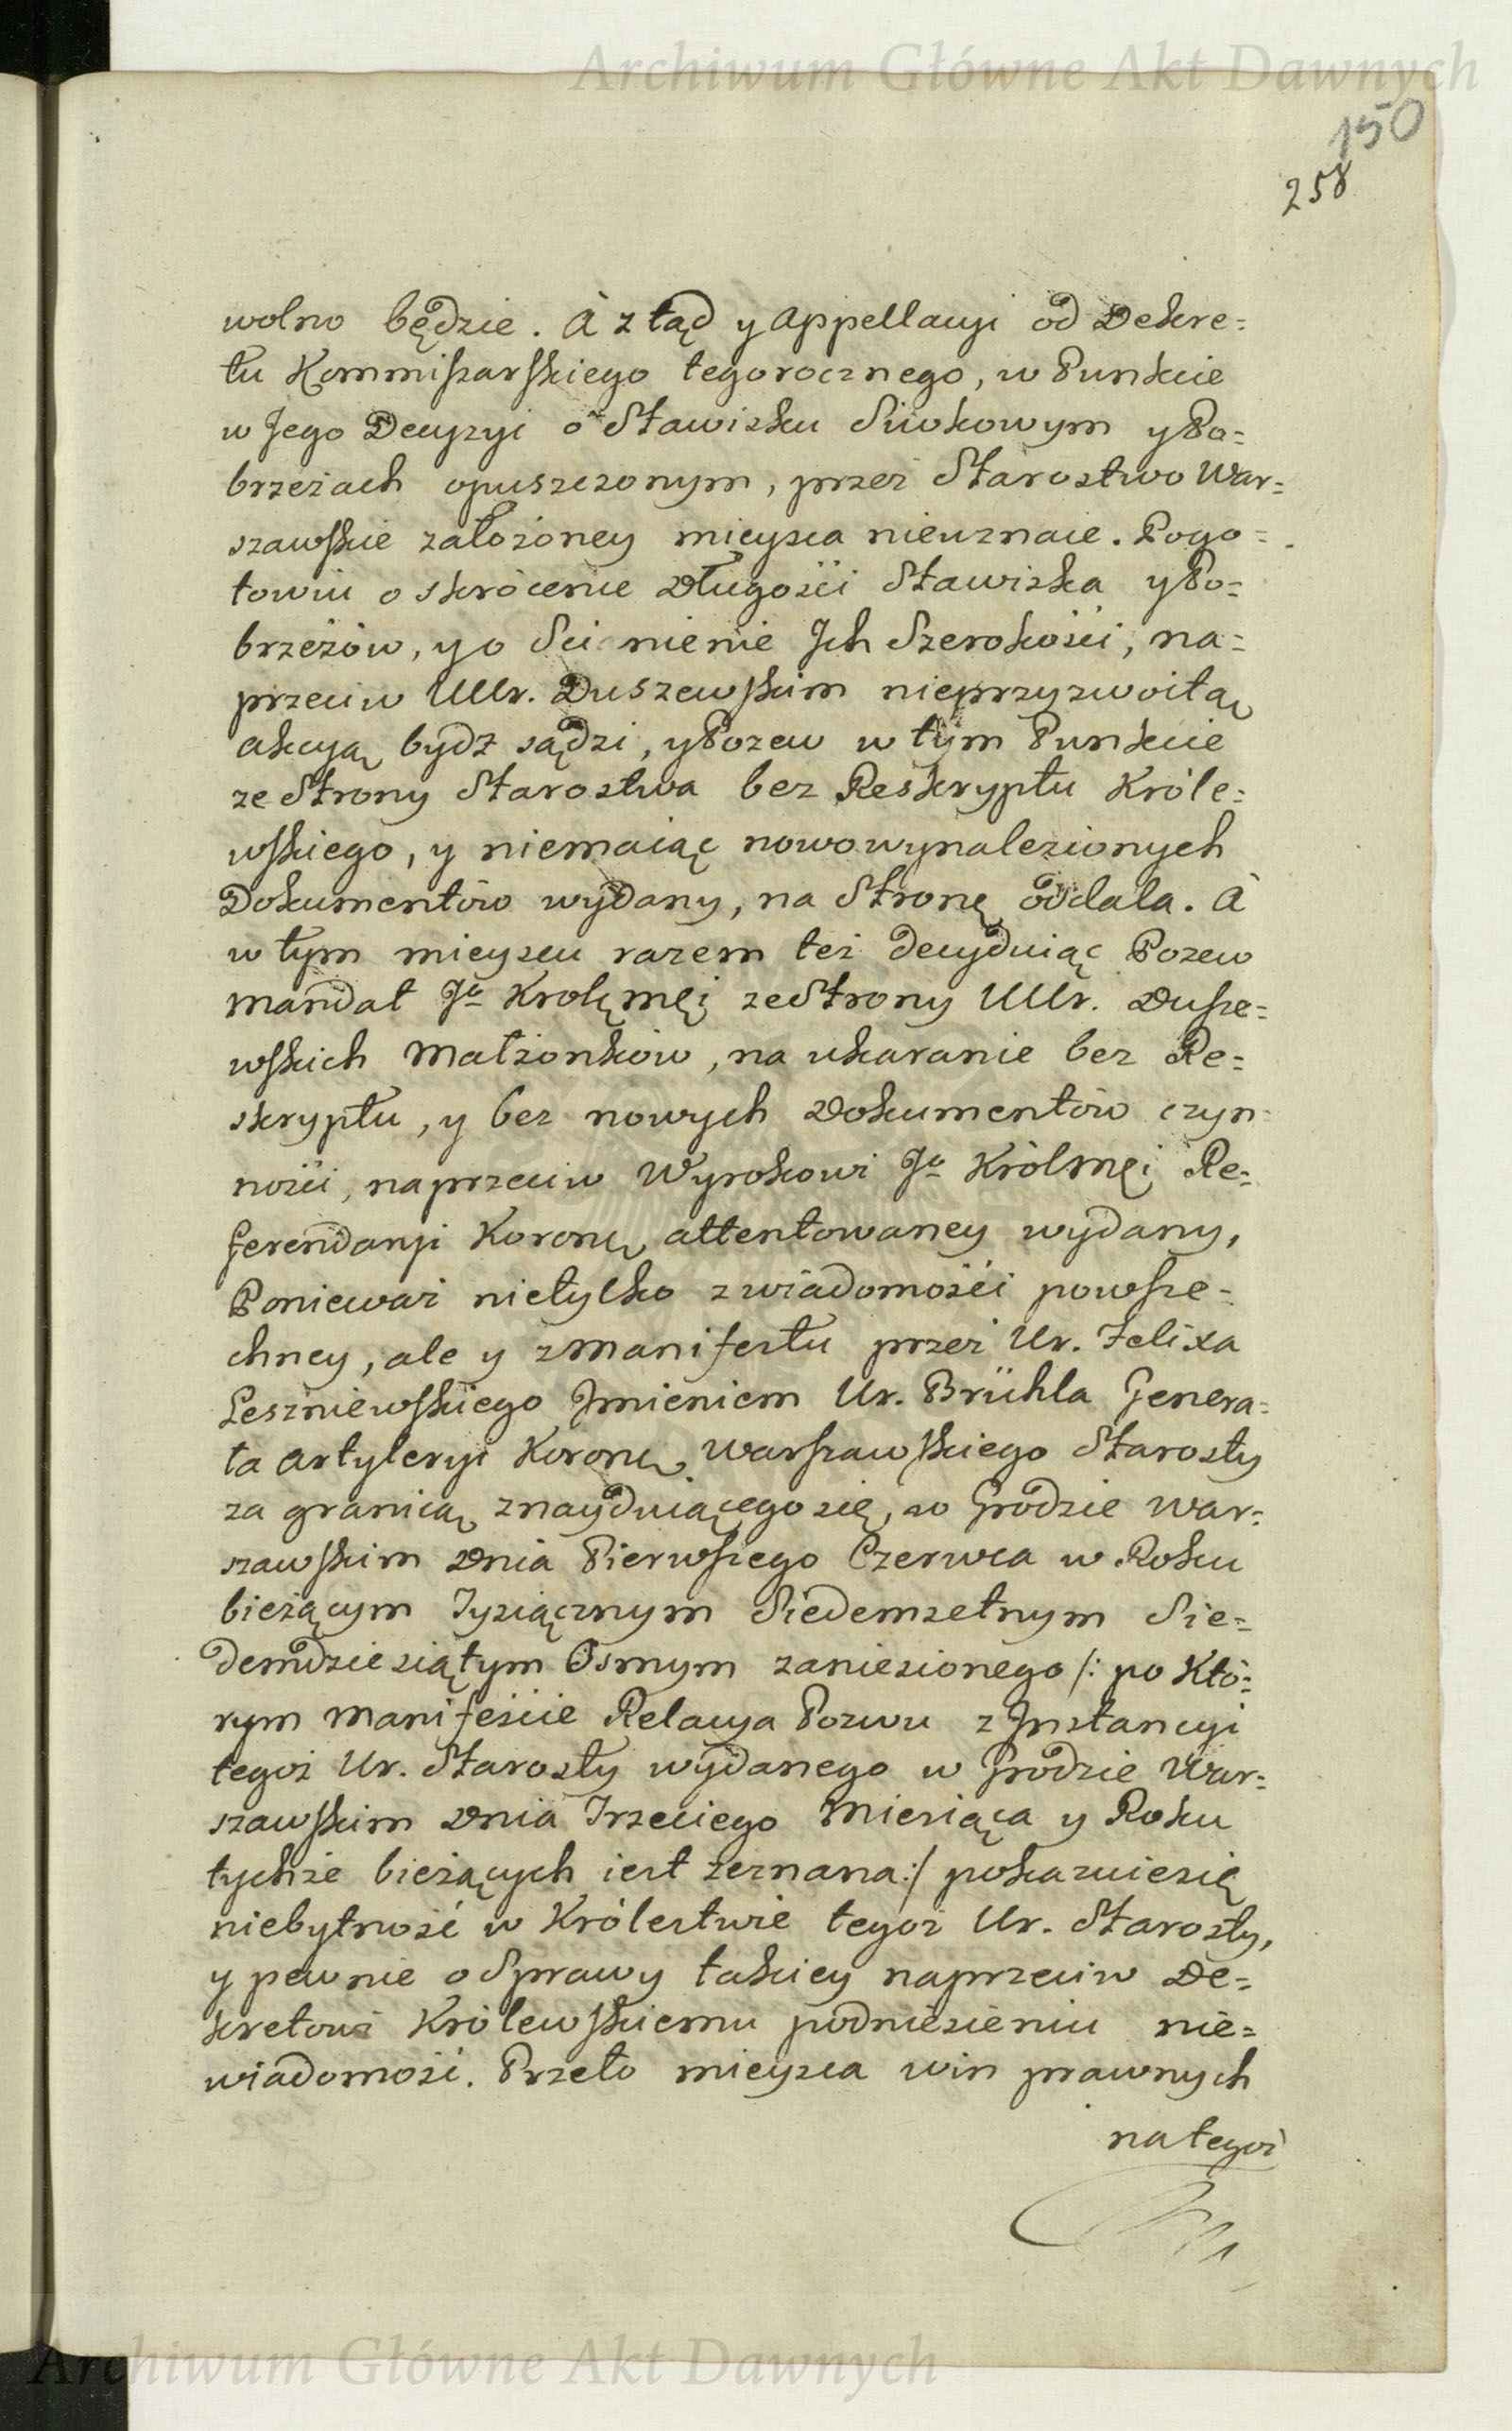 Archiwum Główne Akt Dawnych
150
258
wolno będzie. A ztąd y Appellacyi od Dekre=
tu Kommissarskiego tegorocznego, w Punkcie
w Jego Decyzyi o Stawisku Siwkowym y Po=
brzeżach opuszczonym, przez Starostwo War=
szawskie założoney mieysca nieuznaie. Pogo=
towiu o skrócenie Długości Stawiska y Po=
brzeżów, y o Scinienie Jch Szerokości, na=
przeciw UUr. Duszewskim nieprzyzwoitą
akcyą bydz sądzi, y Pozew w tym Punkcie
ze Strony Starostwa bez Reskryptu Króle=
wskiego, y niemaiąc nowowynalezionych
Dokumentów wydany, na Stronę oddala. A
w tym mieyscu razem też decyduiąc Pozew
mandat Jo Krolęmci ze Strony UUr. Dusze=
wskich Małżonków, na ukaranie bez Re=
skryptu, y bez nowych Dokumentów czyn=
ności, naprzeciw Wyrokowi Jo Królmci Re=
ferendaryi Koronu attentowaney wydany,
Ponieważ nietylko z wiadomości powsze=
chney, ale y z Manifestu przez Ur. Felixa
Leszniewskiego Jmieniem Ur. Brühla Genera=
ła Artyleryi Koronu Warszawskiego Starosty
za granicą znayduiącego się, w Grodzie War=
szawskim Dnia Pierwszego Czerwca w Roku
bieżącym Tysiącznym Siedemsetnym Sie=
demdziesiątym Osmym zaniesionego /: po Któ=
rym Manifeście Relacya Pozwu z Jnstancyi
tegoż Ur. Starosty wydanego w Grodzie War=
szawskim Dnia Trzeciego Miesiąca y Roku
tychże bieżących iest zeznana :/ pokazuie się
niebytność w Królestwie tegoż Ur. Starosty,
y pewnie o Sprawy takiey naprzeciw De=
kretowi Królewskiemu podniesieniu nie=
wiadomość. Przeto mieysca win prawnych
na tegoż
Archiwum Główne Akt Dawnych